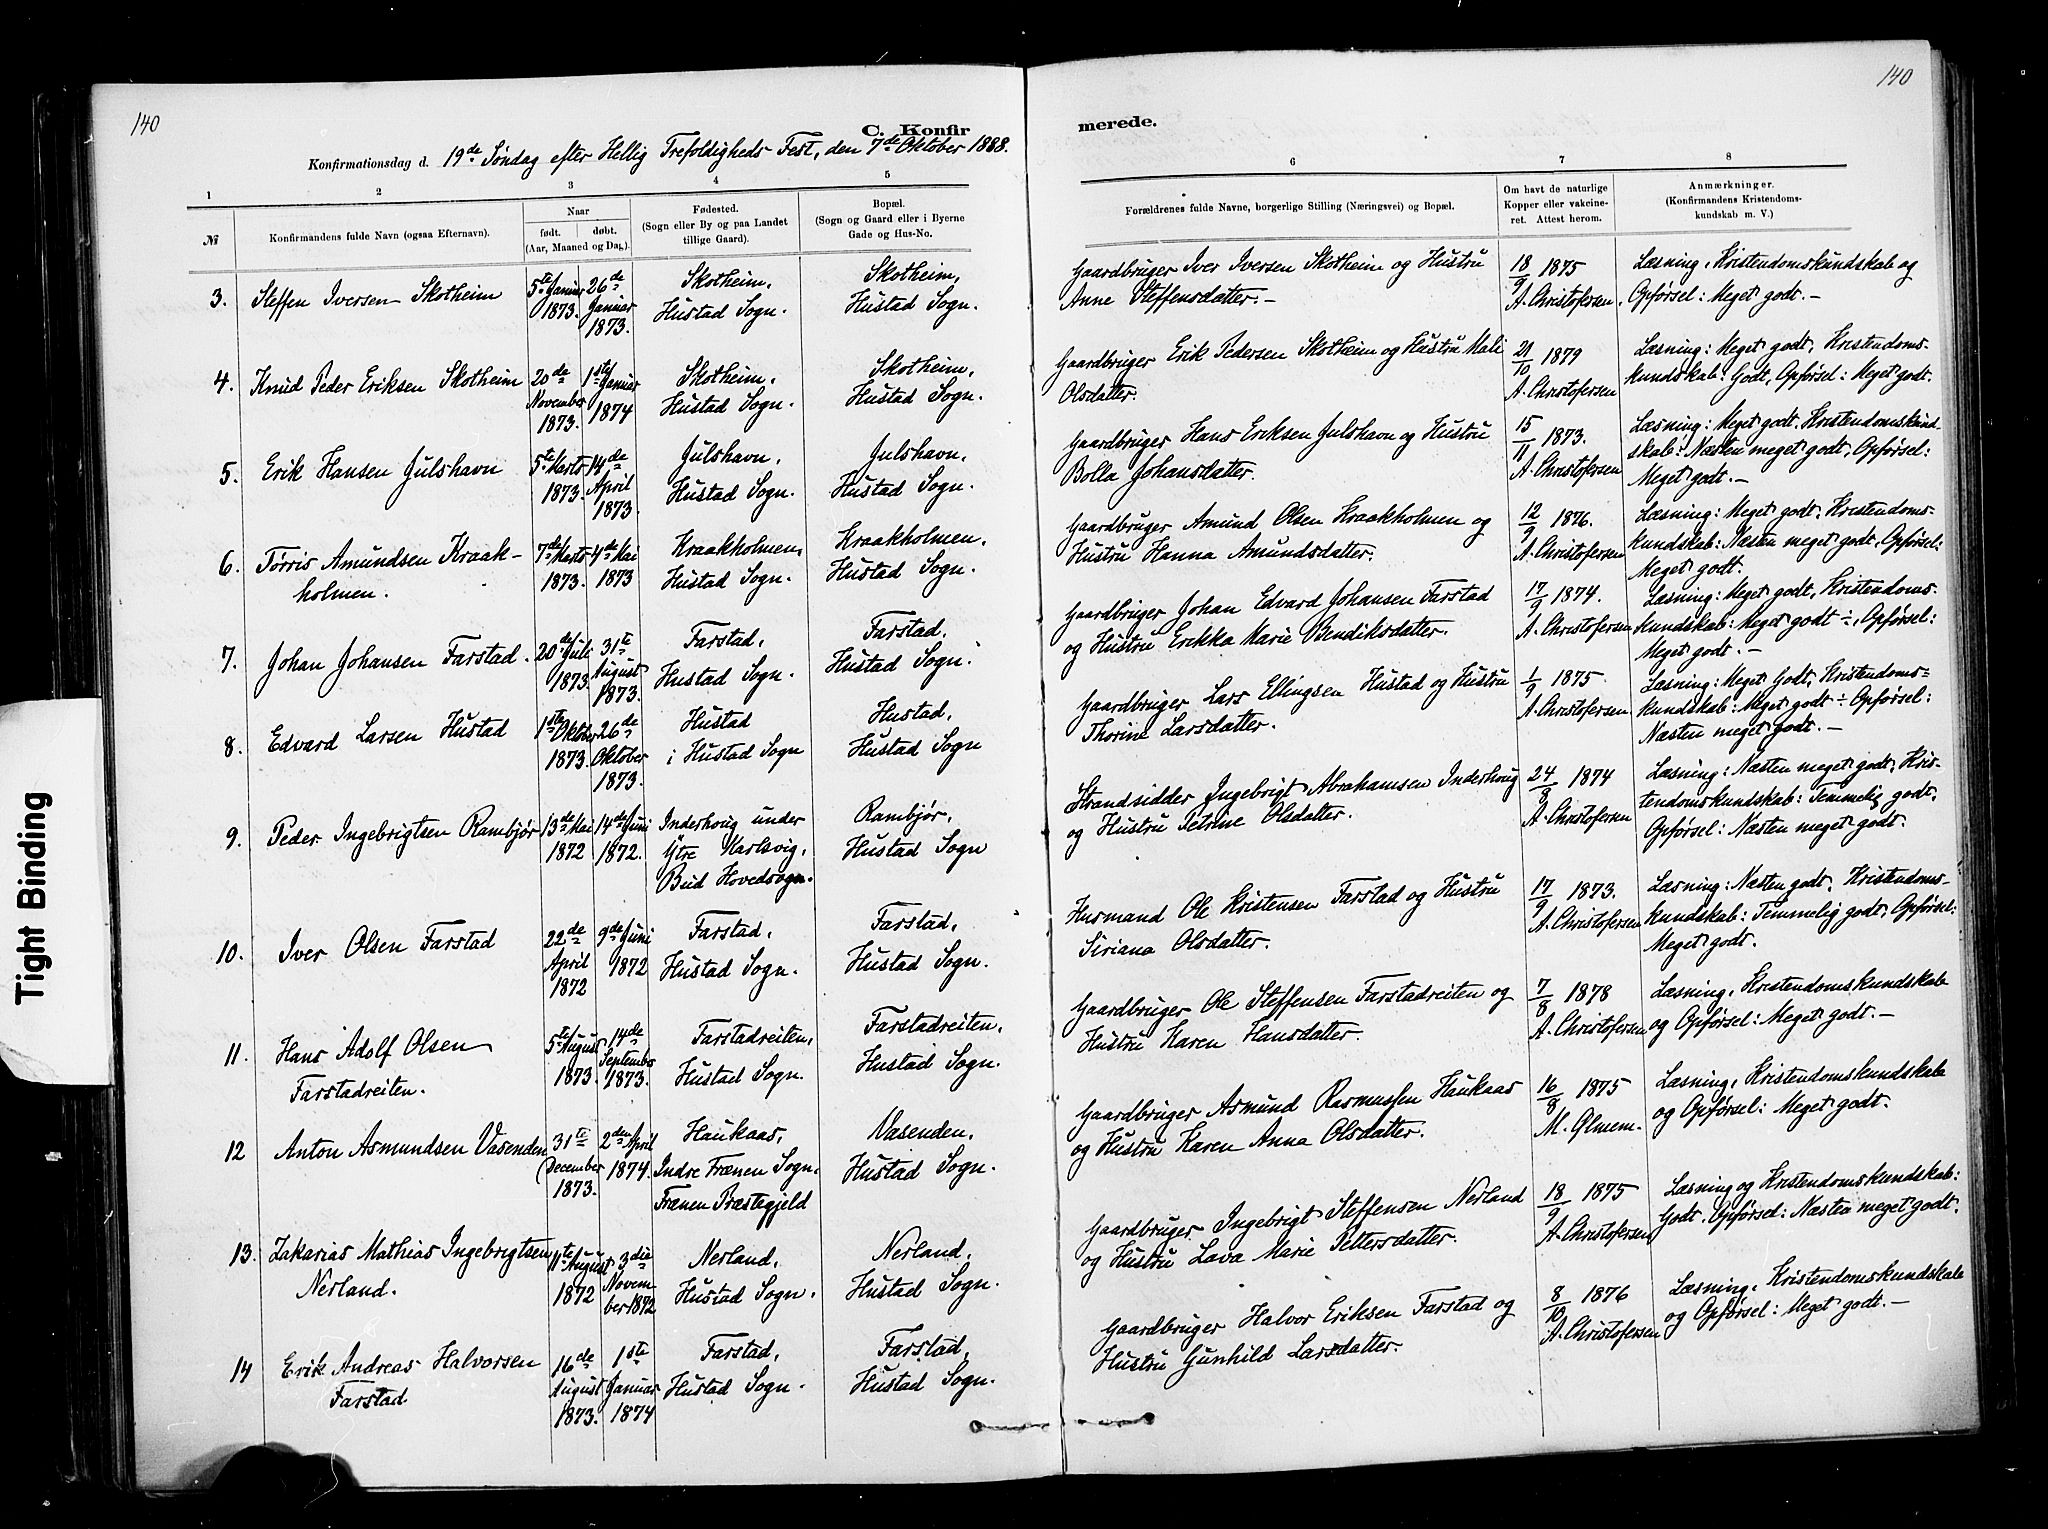 140
140
C. Konfir
merede.
Konfirmationsdag d. 19de Søndag efter Hellig Trefoldigheds Fest, den 7de Oktober 1888.
1
2
3
4
5
6
7
8
№
Konfirmandens fulde Navn (ogsaa Efternavn).
Naar
født. døbt.
(Aar, Maaned og Dag).
Fødested.
(Sogn eller By og paa Landet
tillige Gaard).
Bopæl.
(Sogn og Gaard eller i Byerne
Gade og Hus-No.
Forældrenes fulde Navne, borgerlige Stilling (Næringsvei) og Bopæl.
Om havt de naturlige
Kopper eller vakcine-
ret. Attest herom.
Anmærkninger.
(Konfirmandens Kristendoms-
kundskab m. V.)
3. Steffen Iversen Skotheim
5te Januar
1873.
26de
Januar
1873.
Skotheim,
Hustad Sogn.
Skotheim,
Hustad Sogn.
Gaardbruger Iver Iversen Skotheim og Hustru
Anne Steffensdatter.—
18/9 1875
A. Christofersen.
Læsning, Kristendomskundskab og
Opførsel: Meget godt.—
4. Knud Peder Eriksen Skotheim
20de
November
1873.
1ste Januar
1874
Skotheim,
Hustad Sogn.
Skotheim,
Hustad Sogn.
Gaardbruger Erik Pedersen Skotheim og Hustru Mali
Olsdatter.
21/10 1879
A. Christofersen
Læsning: Meget godt, Kristendoms-
kundskab: Godt, Opførsel: Meget godt.
5. Erik Hansen Julshavn
5te Marts
1873.
14de
April
1873.
Julshavn,
Hustad Sogn.
Julshavn,
Hustad Sogn.
Gaardbruger Hans Eriksen Julshavn og Hustru
Bolla Johansdatter.
15/11 1873.
A. Christofersen
Læsning: Meget godt, Kristendomskund
skab: Næsten meget godt, Opførsel:
Meget godt.—
6. Tørris Amundsen Kraak-
holmen.
7de Marts
1873.
4de Mai
1873
Kraakholmen,
Hustad Sogn.
Kraakholmen.
Hustad Sogn.
Gaardbruger Amund Olsen Kraakholmen og
Hustru Hanna Amundsdatter.
12/9 1876.
A. Christofersen
Læsning: Meget godt, Kristendoms-
kundskab: Næsten meget godt, Opførsel:
Meget godt.
7. Johan Johansen Farstad.
20de Juli
1873
31te
August
1873.
Farstad,
Hustad Sogn.
Farstad.
Hustad Sogn.
Gaardbruger Johan Edvard Johansen Farstad
og Hustru Erikka Marie Bendiksdatter.
17/9 1874.
A. Christofersen
Læsning: Meget godt, Kristendoms-
kundskab: Meget godt ÷, Opførsel:
Meget godt.—
8. Edvard Larsen Hustad
1ste Oktober
1873.
26de
Oktober
1873.
Hustad
i Hustad Sogn
Hustad,
Hustad Sogn
Gaardbruger Lars Ellingsen Hustad og Hustru
Thorine Larsdatter.
1/9 1875.
A. Christofersen
Læsning: Meget Godt, Kristendoms-
kundskab: Meget godt ÷ Opførsel:
Næsten meget godt.—
9. Peder Ingebrigtsen Rambjør
13de Mai
1872
14de Juni
1872.
Inderhoug under
Ytre Karlsvig,
Bud Hovedsogn.
Rambjør,
Hustad Sogn
Strandsidder Ingebrigt Abrahamsen Inderhoug
og Hustru Petrine Olsdatter.
24/8 1874
A. Christofersen
Læsning: Næsten meget godt, Kris-
tendomskundskab: Temmelig godt,
Opførsel: Næsten meget godt.
10. Iver Olsen Farstad
22de
April
1872
9de Juni
1872
Farstad,
Hustad Sogn.
Farstad,
Hustad Sogn.
Husmand Ole Kristensen Farstad og Hustru
Siriana Olsdatter.
17/9 1873.
A. Christofersen
Læsning: Næsten godt, Kristendoms-
kundskab: Temmelig godt, Opførsel:
Meget godt.
11. Hans Adolf Olsen
Farstadreiten.
5te August
1873.
14de
September
1873.
Farstadreiten,
Hustad Sogn.
Farstadreiten.
Hustad Sogn.
Gaardbruger Ole Steffensen Farstadreiten og
Hustru Karen Hansdatter.
7/8 1878
A. Christofersen
Læsning, Kristendomskundskab
og Opførsel: Meget godt.—
12 Anton Asmundsen Vasenden
31te
December
1873.
2den April
1874.
Haukaas,
Indre Frænen Sogn,
Frænen Præstegjeld
Vasenden,
Hustad Sogn.
Gaardbruger Asmund Rasmussen Haukaas
og Hustru Karen Anna Olsdatter.
16/8 1875
M. Glmem.
Læsning, Kristendomskundskab
og Opførsel: Meget godt.
13. Zakarias Mathias Ingebrigtsen
Nerland.
11te August
1872
3die
Novem-
ber 1872
Nerland,
Hustad Sogn.
Nerland,
Hustad Sogn.
Gaardbruger Ingebrigt Steffensen Nerland
og Hustru Lava Marie Pettersdatter.
18/9 1875
A. Christofersen
Læsning og Kristendomskundskab:
Godt. Opførsel: Næsten meget godt.
14 Erik Andreas Halvorsen
Farstad
16de
August
1873.
1ste
Januar
1874
Farstad,
Hustad Sogn.
Farstad,
Hustad Sogn.
Gaardbruger Halvor Eriksen Farstad og
Hustru Gunhild Larsdatter.
8/10 1876
A. Christofersen
Læsning, Kristendomskundskab
og Opførsel: Meget godt.—
Tight Binding